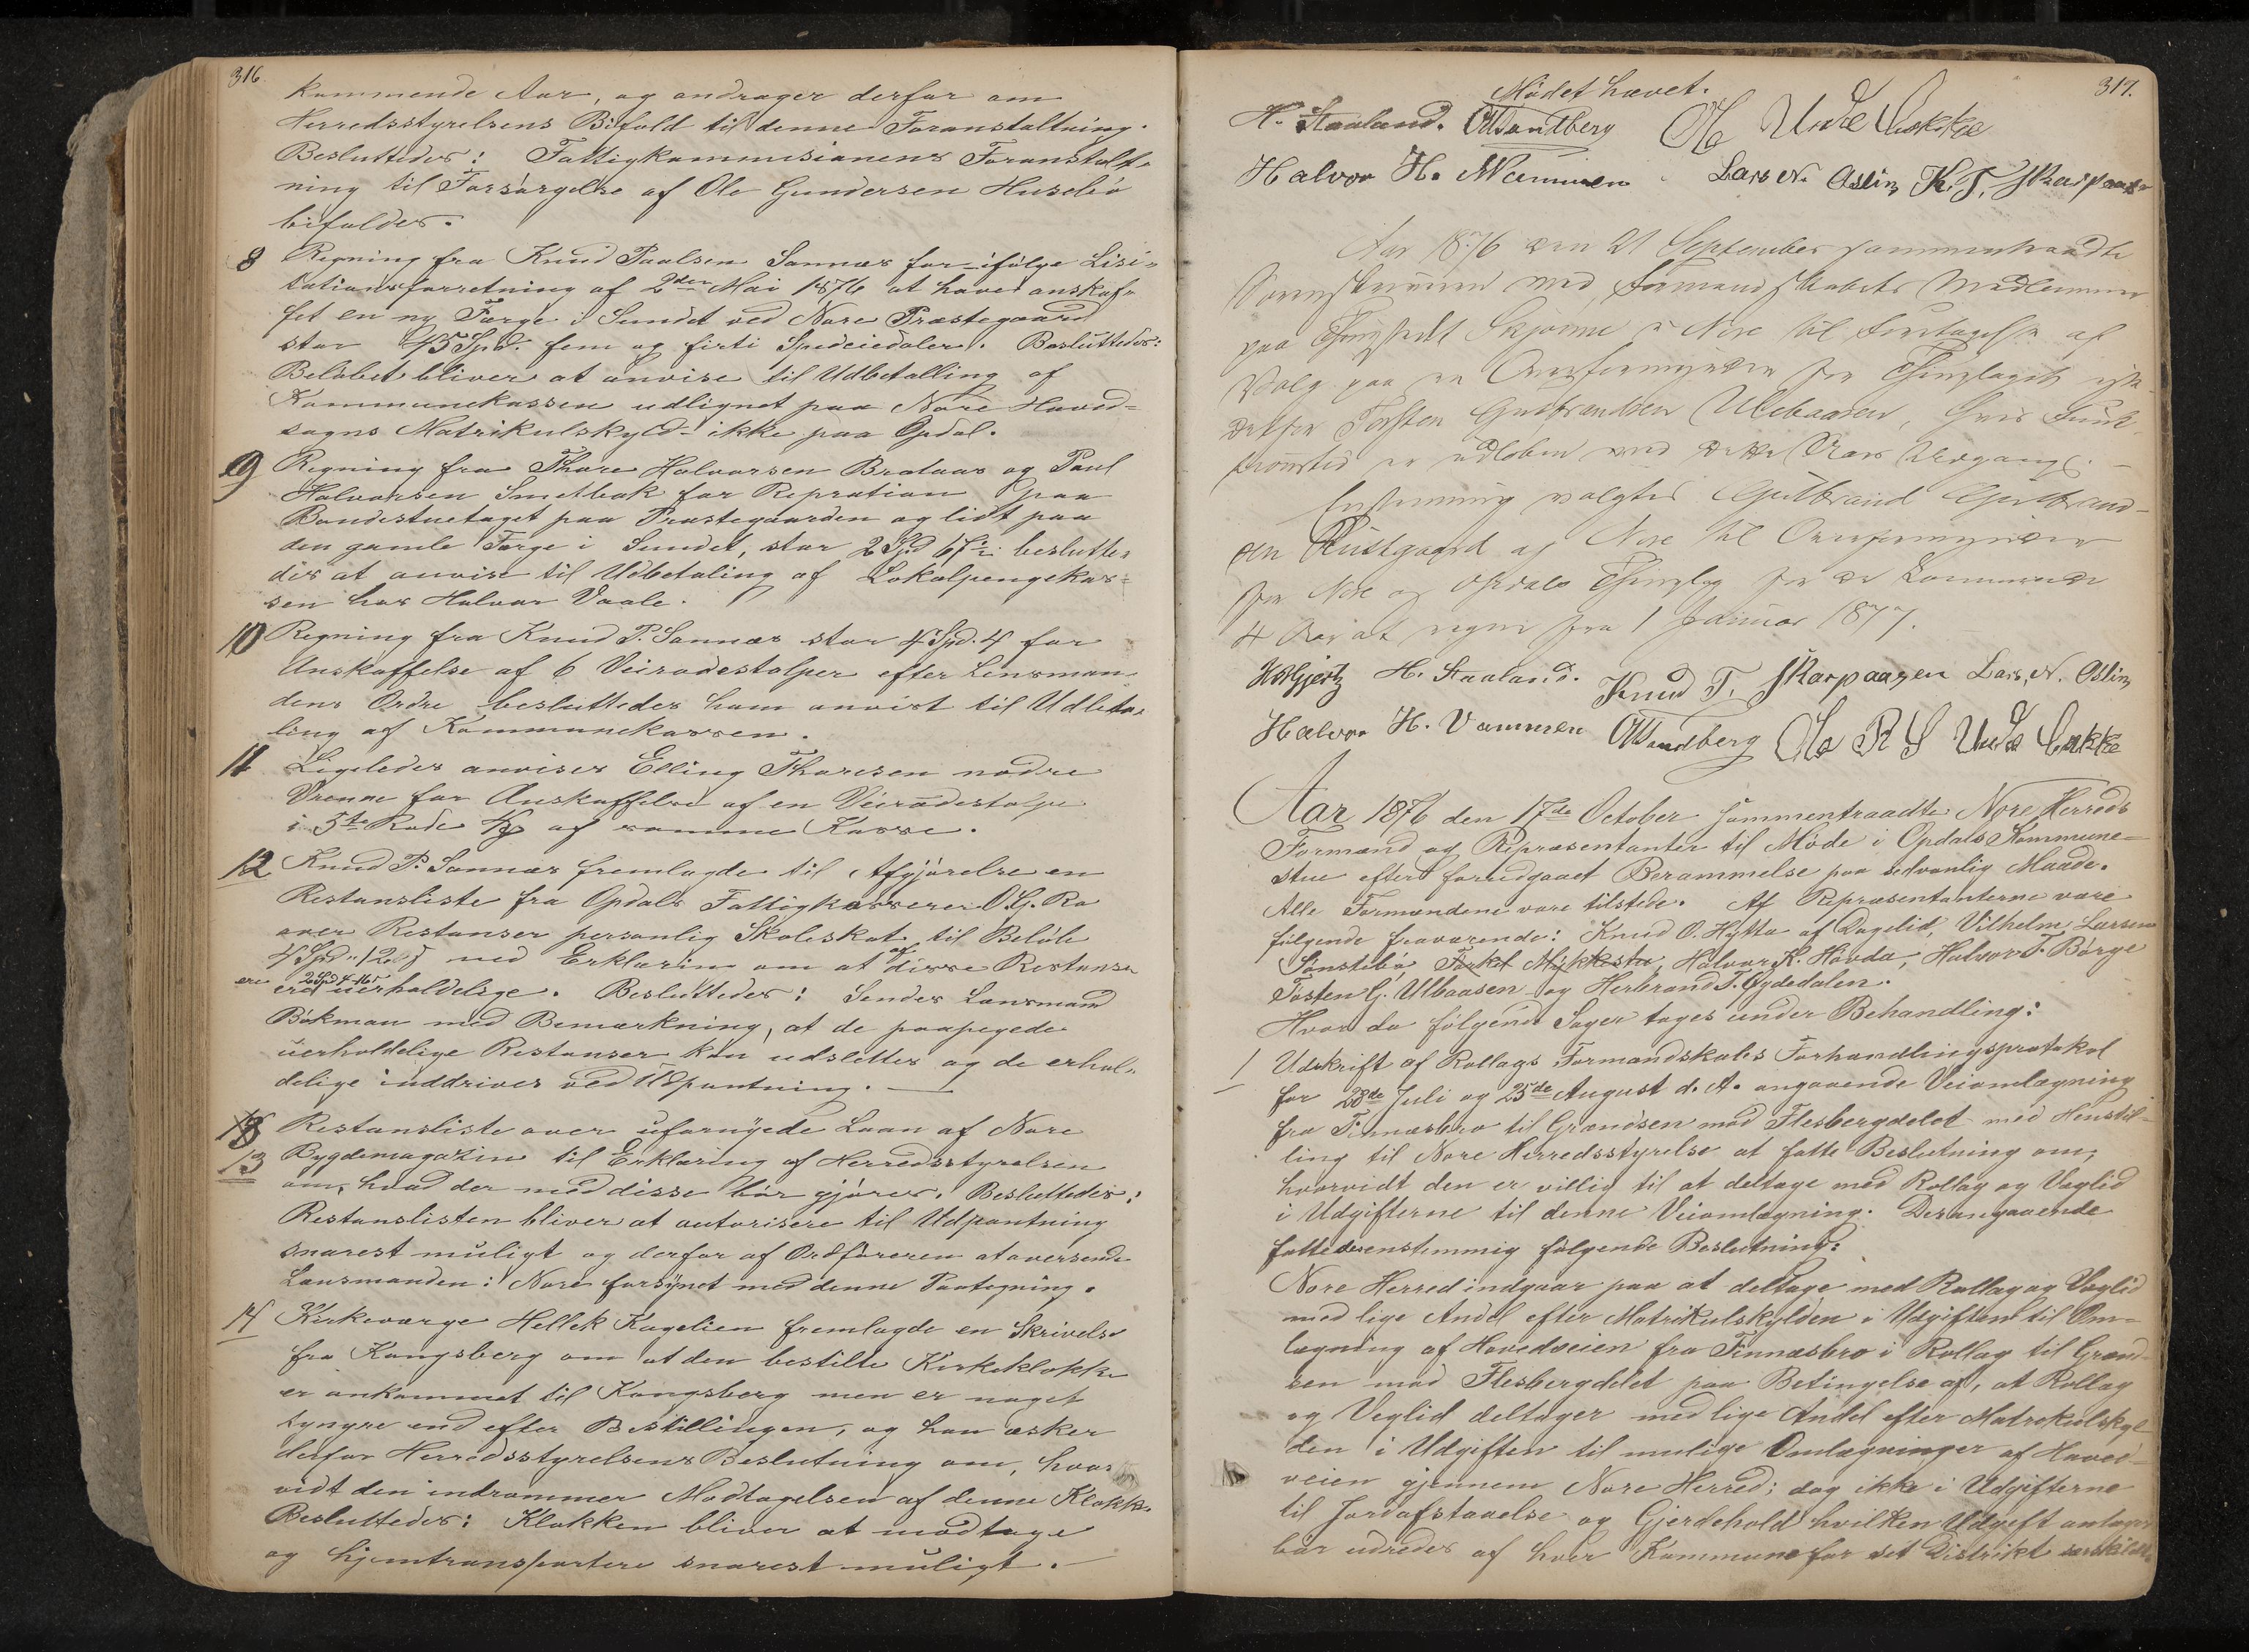 316.
kommende Aar, og andrager derfor om
Herredsstyrelsens Bifald til denne Foranstaltning.
Besluttedes: Fattigkommisionens Foranstalt-
ning til Forsørgelse af Ole Gundersen Husebø
bifaldes.
8 Regning fra Knud Paalsen Sannæs for ifølge Lisi-
tationsforretning af 2den Mai 1876 at have anskaf-
fet en ny Færge i Sundet ved Nore Præstegaard
stor 45 Spd. fem og firti Speciedaler. Besluttedes:
Beløbet bliver at anvise til Udbetalling af
Kommunekassen udlignet paa Nore Hoved-
sogns Matrikulskyld - ikke paa Opdal.
9 Regning fra Thore Halvorsen Brataas og Paul
Halvorsen Smetbak for Repration paa
Bondestuetaget paa Præstegaarden og lidt paa
den gamle Færge i Sundet, stor 2 Spd beslutte-
des at anvise til Udbetaling af Lokalpengekas-
sen hos Halvor Vaale.
10 Regning fra Knud P. Sannæs stor 4 Spd. 4 for
Anskaffelse af 6 Veirodestolper efter Lensman-
dens Ordre besluttedes ham anvist til Udbeta-
ling af Kommunekassen.
11 Ligeledes anvises Elling Thoresen nødre
Vrenne for Anskaffelse af en Veirodestolpe
i 5te Rode af samme Kasse.
12 Knud P. Sannæs fremlagde til Afgjørelse en
Restansliste fra Opdals Fattigkasserer O. G. Ro
over Restanser personlig Skoleskat til Beløb
4 Spd med Erklæring om at af disse Restanser
ere uerholdelige. Besluttedes: Sendes Lensmand
Bøkman med Bemærkning, at de paapegede
uerholdelige Restanser kan udslettes og de erhol-
delige inddrives ved Udpantning.
13 Restansliste over ufornyede Laan af Nore
Bygdemagazin til Erklæring af Herredsstyrelsen
om, hvad der med disse bør gjøres. Besluttedes:
Restanslisten bliver at autorisere til Udpantning
snarest muligt og derfor af Ordføreren at oversende
Lensmanden i Nore forsynet med denne Paategning.
14 Kirkeværge Hellek Kagelien fremlagde en Skrivelse
fra Kongsberg om at den bestilte Kirkeklokke
er ankommet til Kongsberg men er noget
tyngre end efter Bestillingen, og han æsker
derfor Herredsstyrelsens Beslutning om, hvor-
vidt den indrømmer Modtagelsen af denne Klokke
Besluttedes: Klokken bliver at modtage
og hjemtransportere snarest muligt.
317.
Mødet hævet.
H. Staaland. O Sandberg Ole
Halvor H. Lars N. Oslin K. T. Skarpaasen
Aar 1876 den 21 September sammentraadte
Sorenskriveren med Formandskabets Medlemmer
paa Thingstedet Skjønne i Nore til Foretagelse af
Valg paa en Overformynder for Thinglaget
Torsten Gudbrandsen Ulebaasen, hvis Funk-
tionstid er udløben med dette Aars Udgang.
Enstemmig valgtes Gudbrand Gudbrand-
sen Rustgaard af Nore til Overformynder
for Nore og Opdals Thinglag for de kommende
4 Aar at regne fra 1 Januar 1877.
H. Staaland. Knud T. Skarpaasen Lars, N. Oslin
Halvor H. Vammen O Sandberg Ole
Aar 1876 den 17de October sammentraadte Nore Herreds
Formænd og Repræsentanter til Møde i Opdals Kommune-
stue efter forredgaaet Berammelse paa sedvanlig Maade.
Alle Formændene vare tilstede. Af Repræsentanterne vare
følgende fraværende: Knud O. Hytta af Dagelid, Vilhelm Larsen
Sønstebø Halvor K. Hovda, Halvor T. Børge
Tosten G. Ulbaasen og Herbrand T. Øydedalen.
Hvor da følgende Sager tages under Behandling:
1 Udskrift af Rollags Formandskabs Forhandlingsprotokol
for 28de Juli og 25de August d. A. angaaende Veiomlægning
fra Finnæsbro til Grændsen mod Flesbergdelet med Henstil-
ling til Nore Herredsstyrelse at fatte Beslutning om,
hvorvidt den er villig til at deltage med Rollag og Veglid
i Udgifterne til denne Veiomlægning. Desangaaende
fattedes enstemmig følgende Beslutning:
Nore Herred indgaar paa at deltage med Rollag og Veglid
med lige Andel efter Matrikulskylden i Udgiften til Om-
lægning af Hovedveien fra Finnæsbro i Rollag til Grænd-
sen mod Flesbergdelet paa Betingelse af, at Rollag
og Veglid deltager med lige Andel efter Matrikulskyl-
den i Udgiften til mulige Omlægninger af Hoved-
veien gjennem Nore Herred; dog ikke i Udgifterne
til Jordafstaaelse og Gjerdehold hvilken Udgift antages
bør udredes af hver Kommune for sit Distrikt særskildt.